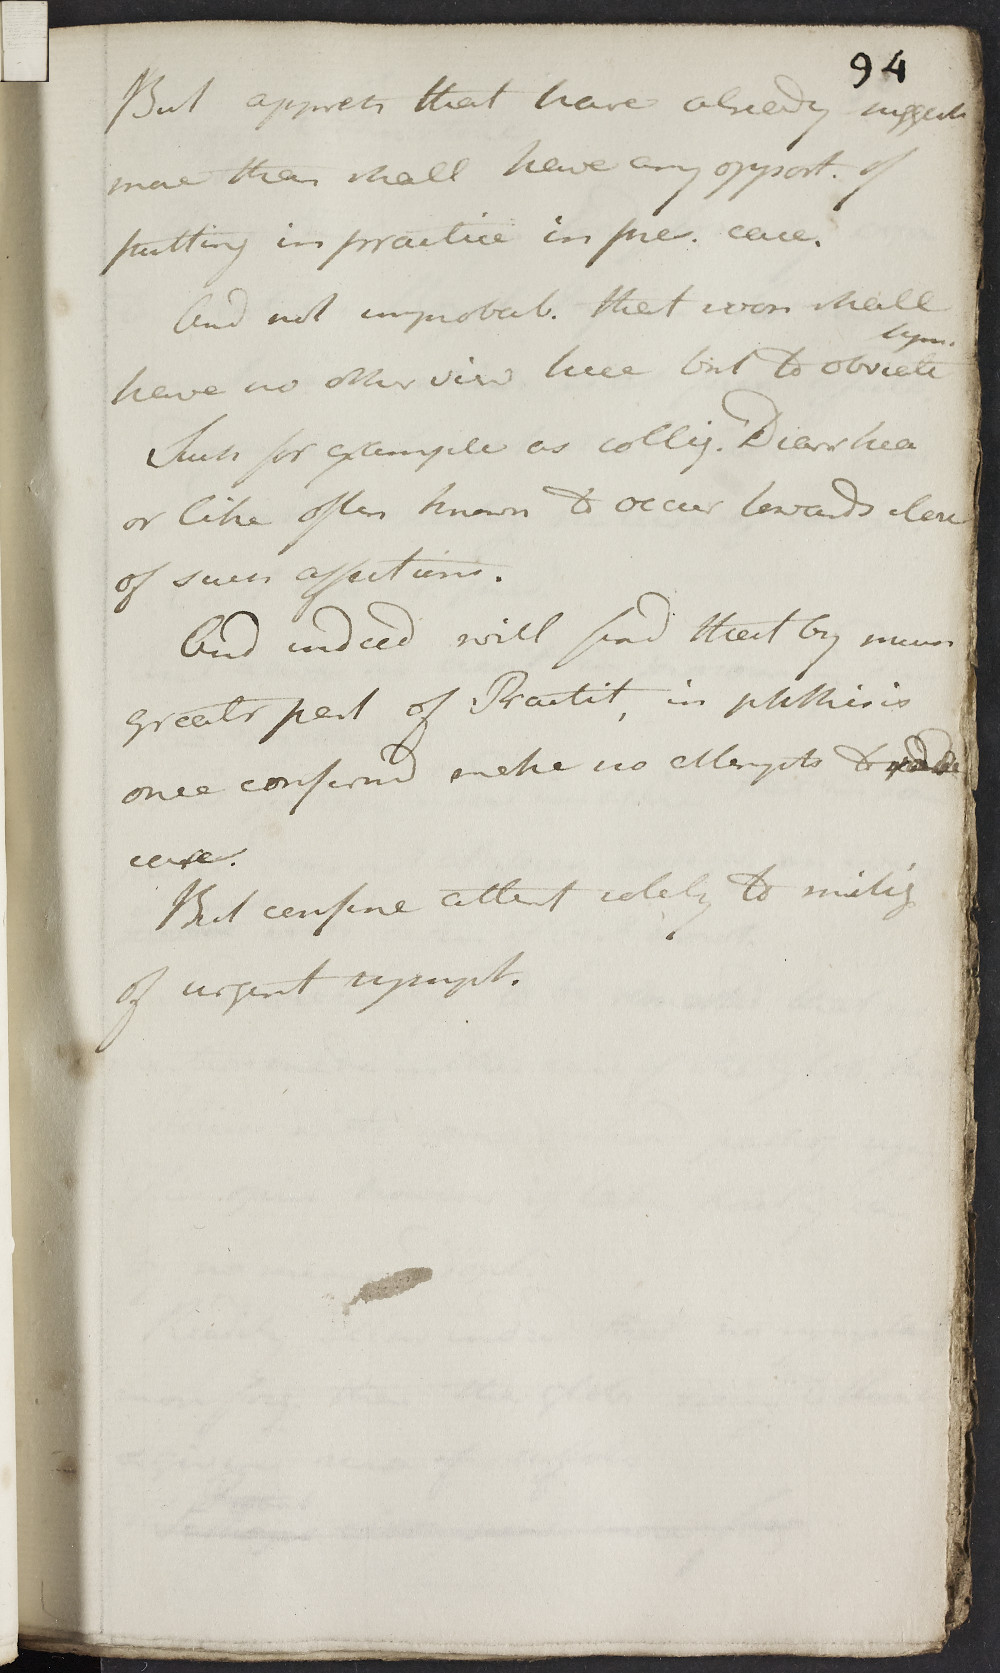 94
But appreh that have already suggest
more than shall have any opport. of
putting in practice in pres. case.
And not improbab. that soon shall
sym.
have no other view here but to obviate
Such for example as colliq. Diarrhea
or like often known to occur towards close
of such affections.
And indeed will find that by much
greatr part of Practit, in phthisis
once confirmd make no attempts to
cure.
But confine attent solely to mitig
of urgent sympt.